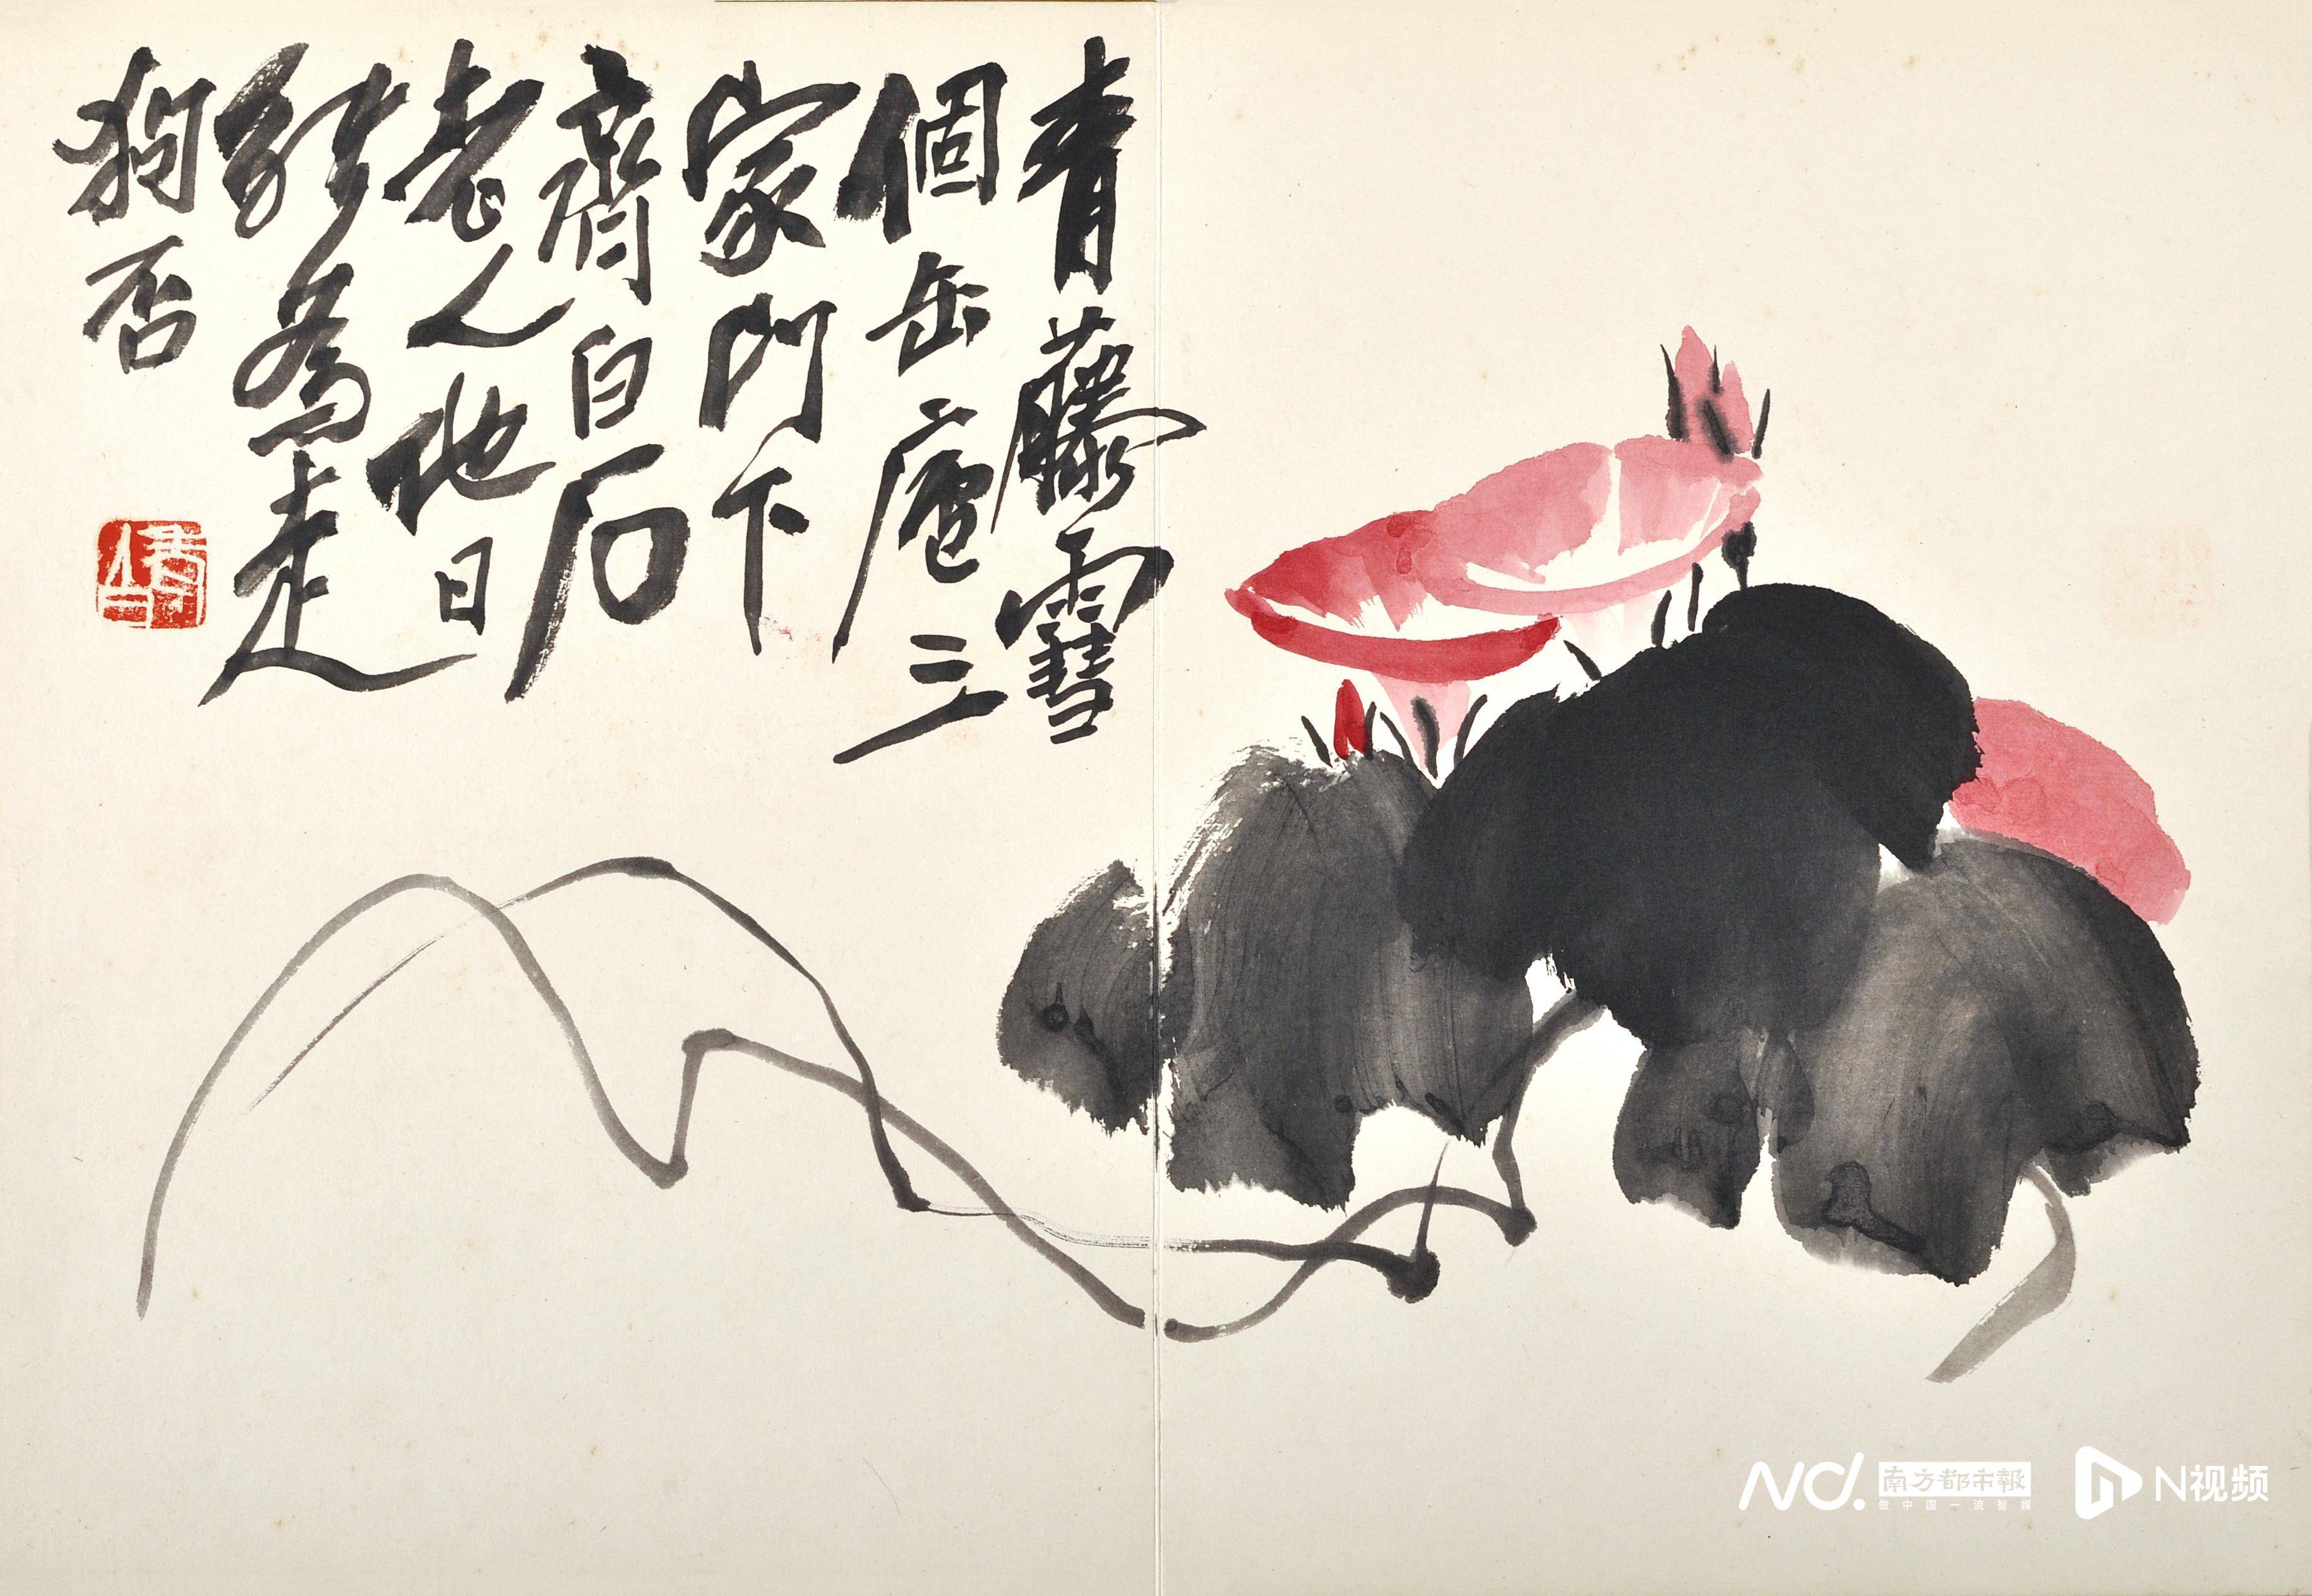 青藤雪
個缶廬三
家門下
齊白石
老人他日
能為走
狗否
南方都市報
做中国一流智媒
N视频